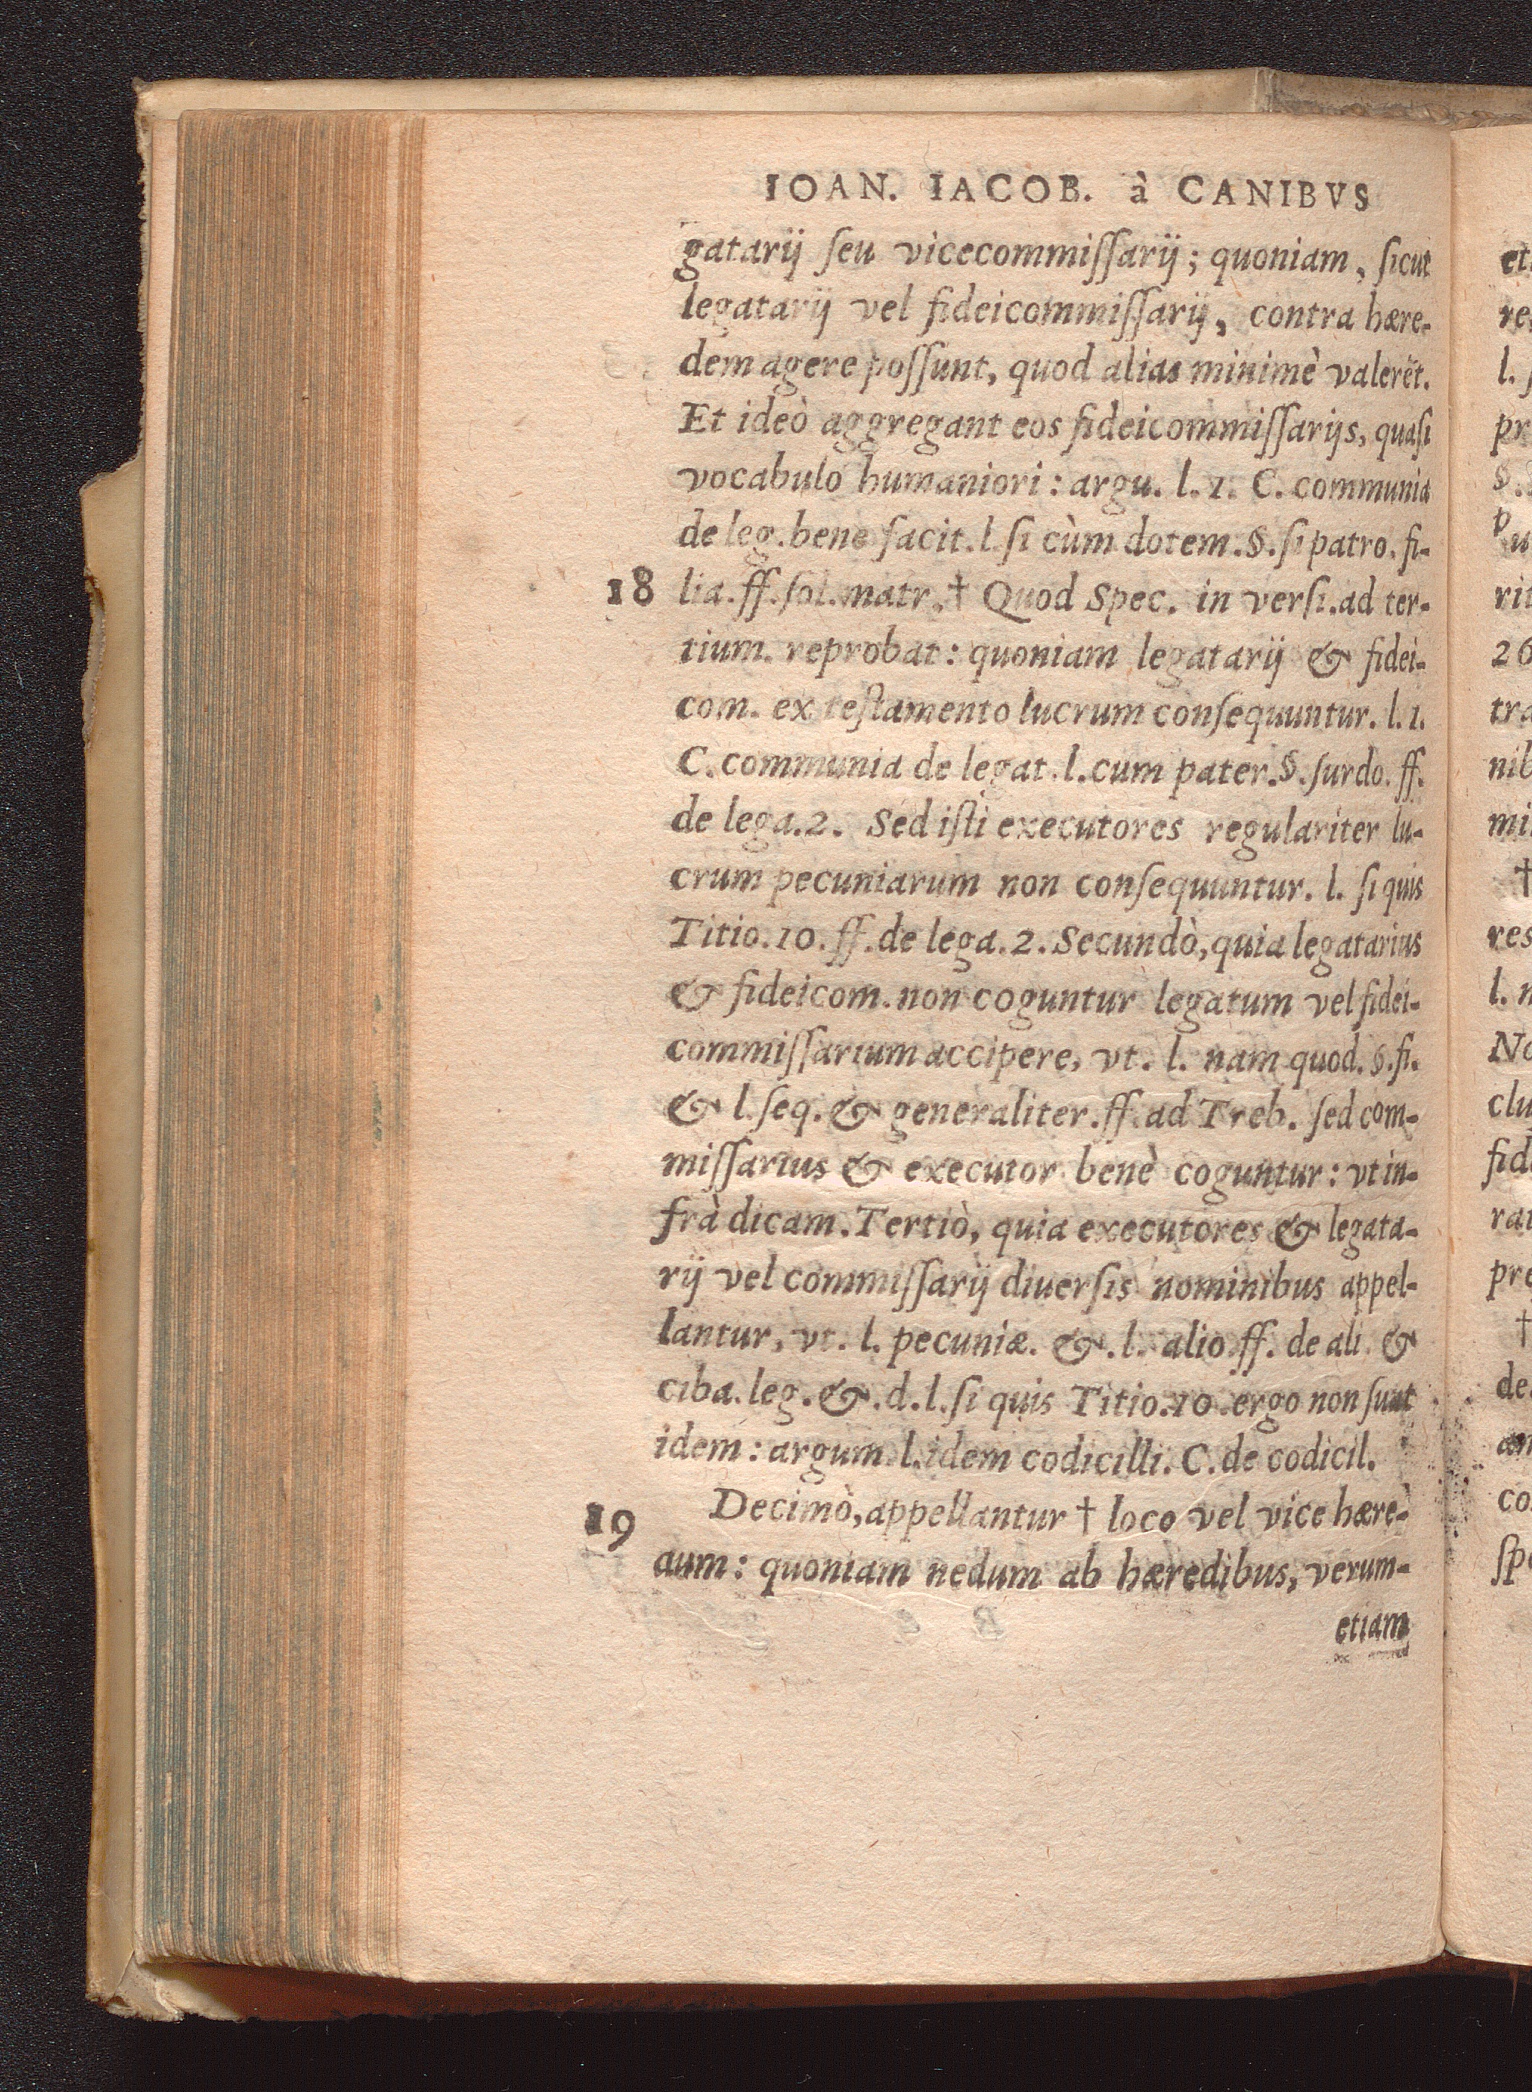 IOAN. IACOB. à CANIBVS
gatarij ſeu vicecommiſſarij; quoniam, ſicut
legatarij vel fideicommiſſarij, contra hære-
dem agere poſſunt, quod alias minimè valerẽt.
Et ideò aggregant eos fideicommiſſarijs, quaſi
vocabulo humaniori: argu. l. 1. C. communia
de leg. bene facit. l. ſi cùm dotem. §. ſi patro. fi-
18 lia. ff. ſol. matr. † Quod Spec. in verſi. ad ter-
tium. reprobat: quoniam legatarij & fidei-
com. ex teſtamento lucrum conſequuntur. l. 1.
C. communia de legat. l. cum pater. §. ſurdo. ff.
de lega. 2. Sed iſti executores regulariter lu-
crum pecuniarum non conſequuntur. l. ſi quis
Titio. 10. ff. de lega. 2. Secundò, quia legatarius
& fideicom. non coguntur legatum vel fidei-
commiſſarium accipere, vt. l. nam quod. §. fi.
& l. ſeq. & generaliter. ff. ad Treb. ſed com-
miſſarius & executor benè coguntur: vt in-
frà dicam. Tertiò, quia executores & legata-
rij vel commiſſarij diuerſis nominibus appel-
lantur, vt. l. pecuniæ. &. l. alio. ff. de ali. &
ciba. leg. &. d. l. ſi quis Titio. 10. ergo non ſunt
idem: argum. l. idem codicilli. C. de codicil.
19 Decimò, appellantur † loco vel vice hære-
dum: quoniam nedum ab hæredibus, verum-
etiam